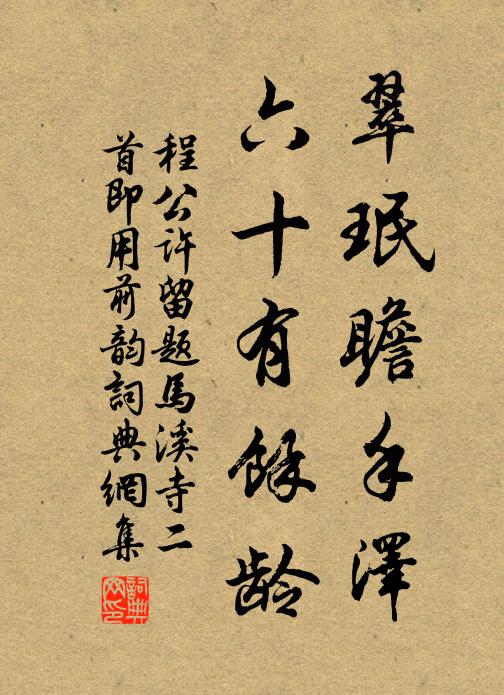 翠珉瞻手澤
六十有餘齡
程公许留题馬溪寺二
首即用前韵詞典網集